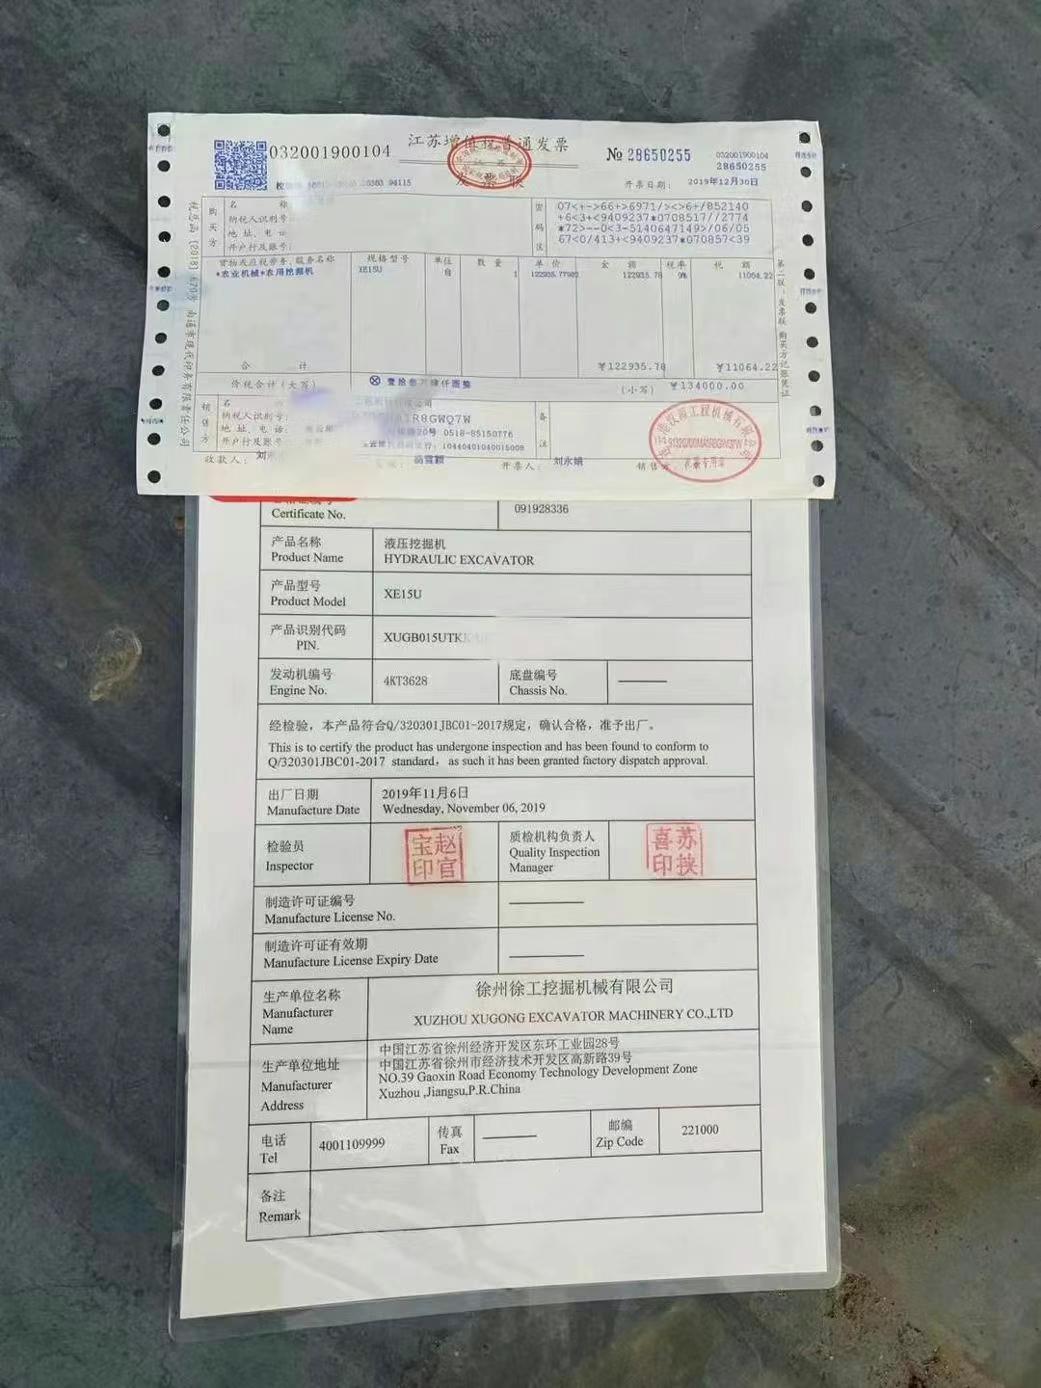 江苏增值税普通发票
发票联
032001900104
№ 28650255
032001900104
28650255
开票日期: 2019年12月30日
校验码
94115
购买方
名 称
纳税人识别号:
地 址、电 话
开户行及账号:
密码区
07<+->66+>6971/><>6+/852140
+6<3+<9409237*0708517//2774
*72>--0<3-5140647149>/06/05
67<0/413+<9409237*070857<39
货物或应税劳务、服务名称 规格型号 单位 数 量 单 价 金 额 税率 税 额
*农业机械*农用挖掘机 XE15U 1 122935.78 9% 11064.22
合 计 ¥122935.78 ¥11064.22
价税合计(大写) ⊗ 壹拾叁万肆仟圆整 (小写) ¥134000.00
销售方
名 称
纳税人识别号: 1R8GWQ7W
地 址、电 话: 20号 0518-85150776
开户行及账号: 10440401040015009
备注
收款人: 刘
开票人: 刘永娟
发票专用章
第二联:发票联 购买方记账凭证
Certificate No. 091928336
产品名称 液压挖掘机
Product Name HYDRAULIC EXCAVATOR
产品型号
Product Model XE15U
产品识别代码
PIN. XUGB015UTK
发动机编号 4KT3628 底盘编号
Engine No. Chassis No.
经检验，本产品符合Q/320301JBC01-2017规定，确认合格，准予出厂。
This is to certify the product has undergone inspection and has been found to conform to
Q/320301JBC01-2017 standard，as such it has been granted factory dispatch approval.
出厂日期 2019年11月6日
Manufacture Date Wednesday, November 06, 2019
检验员
Inspector
赵官宝印
质检机构负责人
Quality Inspection
Manager
苏挟喜印
制造许可证编号
Manufacture License No.
制造许可证有效期
Manufacture License Expiry Date
生产单位名称
Manufacturer
Name
徐州徐工挖掘机械有限公司
XUZHOU XUGONG EXCAVATOR MACHINERY CO.,LTD
生产单位地址
Manufacturer
Address
中国江苏省徐州经济开发区东环工业园28号
中国江苏省徐州市经济技术开发区高新路39号
NO.39 Gaoxin Road Economy Technology Development Zone
Xuzhou ,Jiangsu,P.R.China
电话 4001109999 传真 邮编 221000
Tel Fax Zip Code
备注
Remark